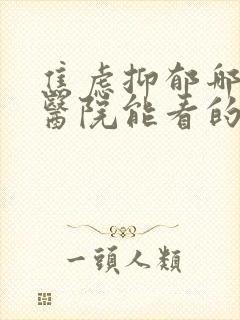 焦虑抑郁哪
醫院能看的
一頭人類